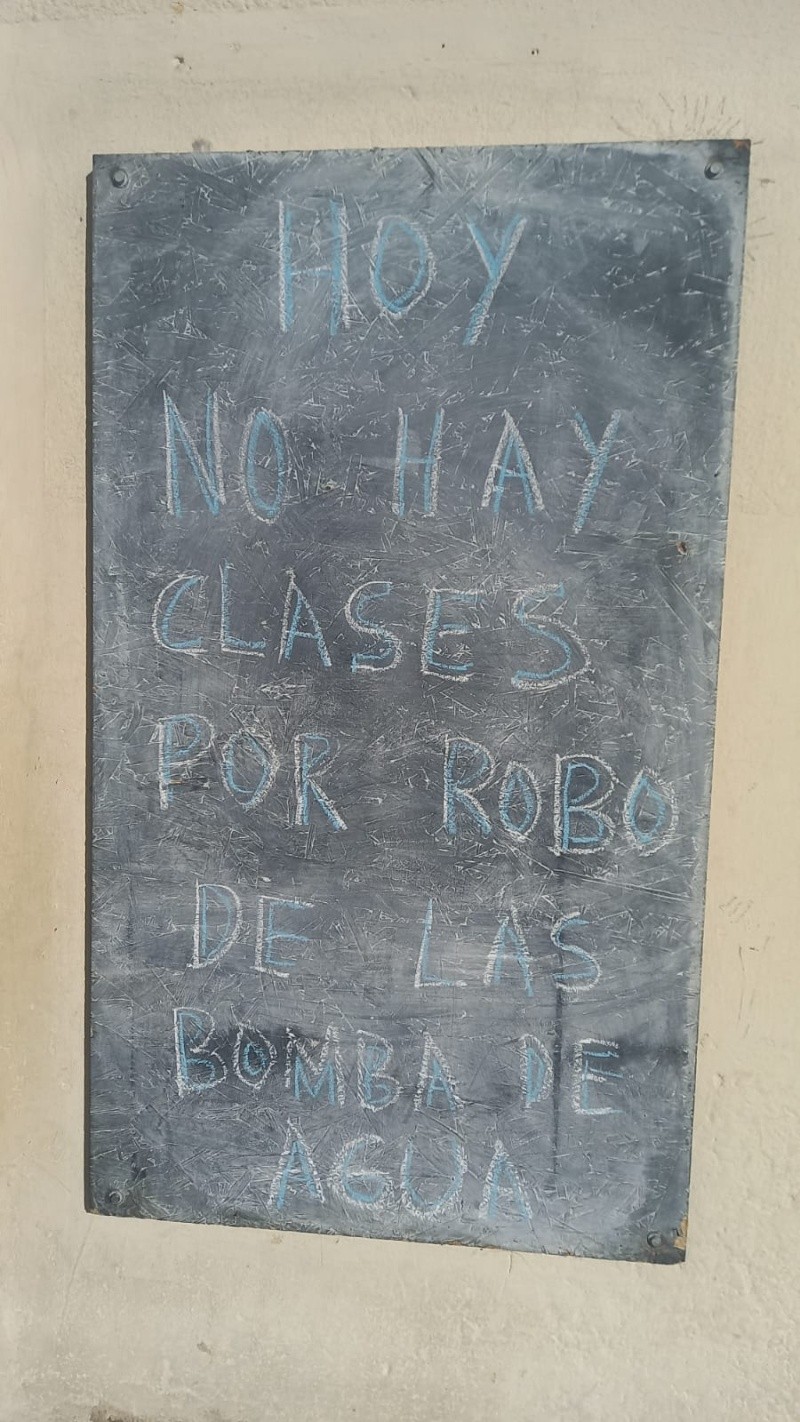 HOY
NO HAY
CLASES
POR ROBO
DE LAS
BOMBA DE
AGUA